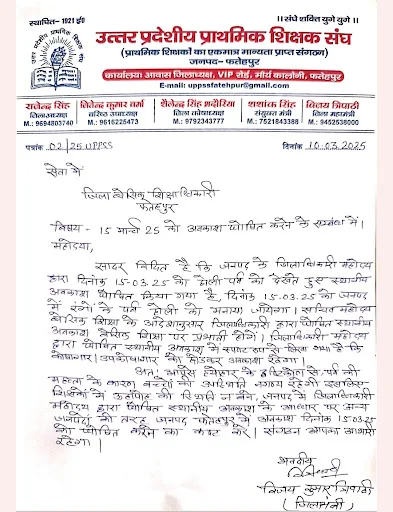 स्थापित- 1921 ई०
।। संघे शक्ति युगे युगे ।।
उत्तर प्रदेशीय प्राथमिक शिक्षक संघ
(प्राथमिक शिक्षकों का एकमात्र मान्यता प्राप्त संगठन)
जनपद- फतेहपुर
कार्यालयः आवास जिलाध्यक्ष, VIP रोड, मौर्य कालोनी, फतेहपुर
E-mail: uppssfatehpur@gmail.com
राजेन्द्र सिंह
जिलाध्यक्ष
M.: 9694803740
नितेन्द्र कुमार वर्मा
वरिष्ठ उपाध्यक्ष
M.: 9616225473
शैलेन्द्र सिंह भदौरिया
जिला कोषाध्यक्ष
M.: 9792343777
शशांक सिंह
संयुक्त मंत्री
M.: 7521843388
विजय त्रिपाठी
जिला महामंत्री
M.: 9452538000
पत्रांक 02/25 UPPSS
दिनांक 10.03.2025
सेवा में
जिला बेसिक शिक्षाधिकारी
फतेहपुर
विषय - 15 मार्च 25 को अवकाश घोषित करने के सम्बंध में।
महोदया,
सादर विदित है कि जनपद के जिलाधिकारी महोदय
द्वारा दिनांक 15-03.25 को होली पर्व को देखते हुए स्थानीय
अवकाश घोषित किया गया है, दिनांक 15-03.25 को जनपद
में रंगों के पर्व होली को मनाया जायेगा। सचिव महोदय
बेसिक शिक्षा के आदेशानुसार जिलाधिकारी द्वारा घोषित स्थानीय
अवकाश बेसिक शिक्षा पर प्रभावी होंगे। जिलाधिकारी महोदय
द्वारा घोषित स्थानीय अवकाश में स्पष्ट रूप से लिखा गया है कि
कोषागार/उपकोषागार को छोड़कर अवकाश रहेगा।
अतः आपसे के दृष्टिकोण से पर्व की
महत्ता के कारण बच्चों की उपस्थिति नगण्य रहेगी इसलिए
शिक्षकों में ऊहापोह की स्थिति न बने, जनपद में जिलाधिकारी
महोदय द्वारा घोषित स्थानीय अवकाश के आधार पर अन्य
जनपदों की तरह जनपद फतेहपुर में अवकाश दिनांक 15-03.25
को घोषित करने का कष्ट करें। संगठन आपका आभारी
रहेगा।
भवदीय
विजय कुमार त्रिपाठी
(जिलामंत्री)